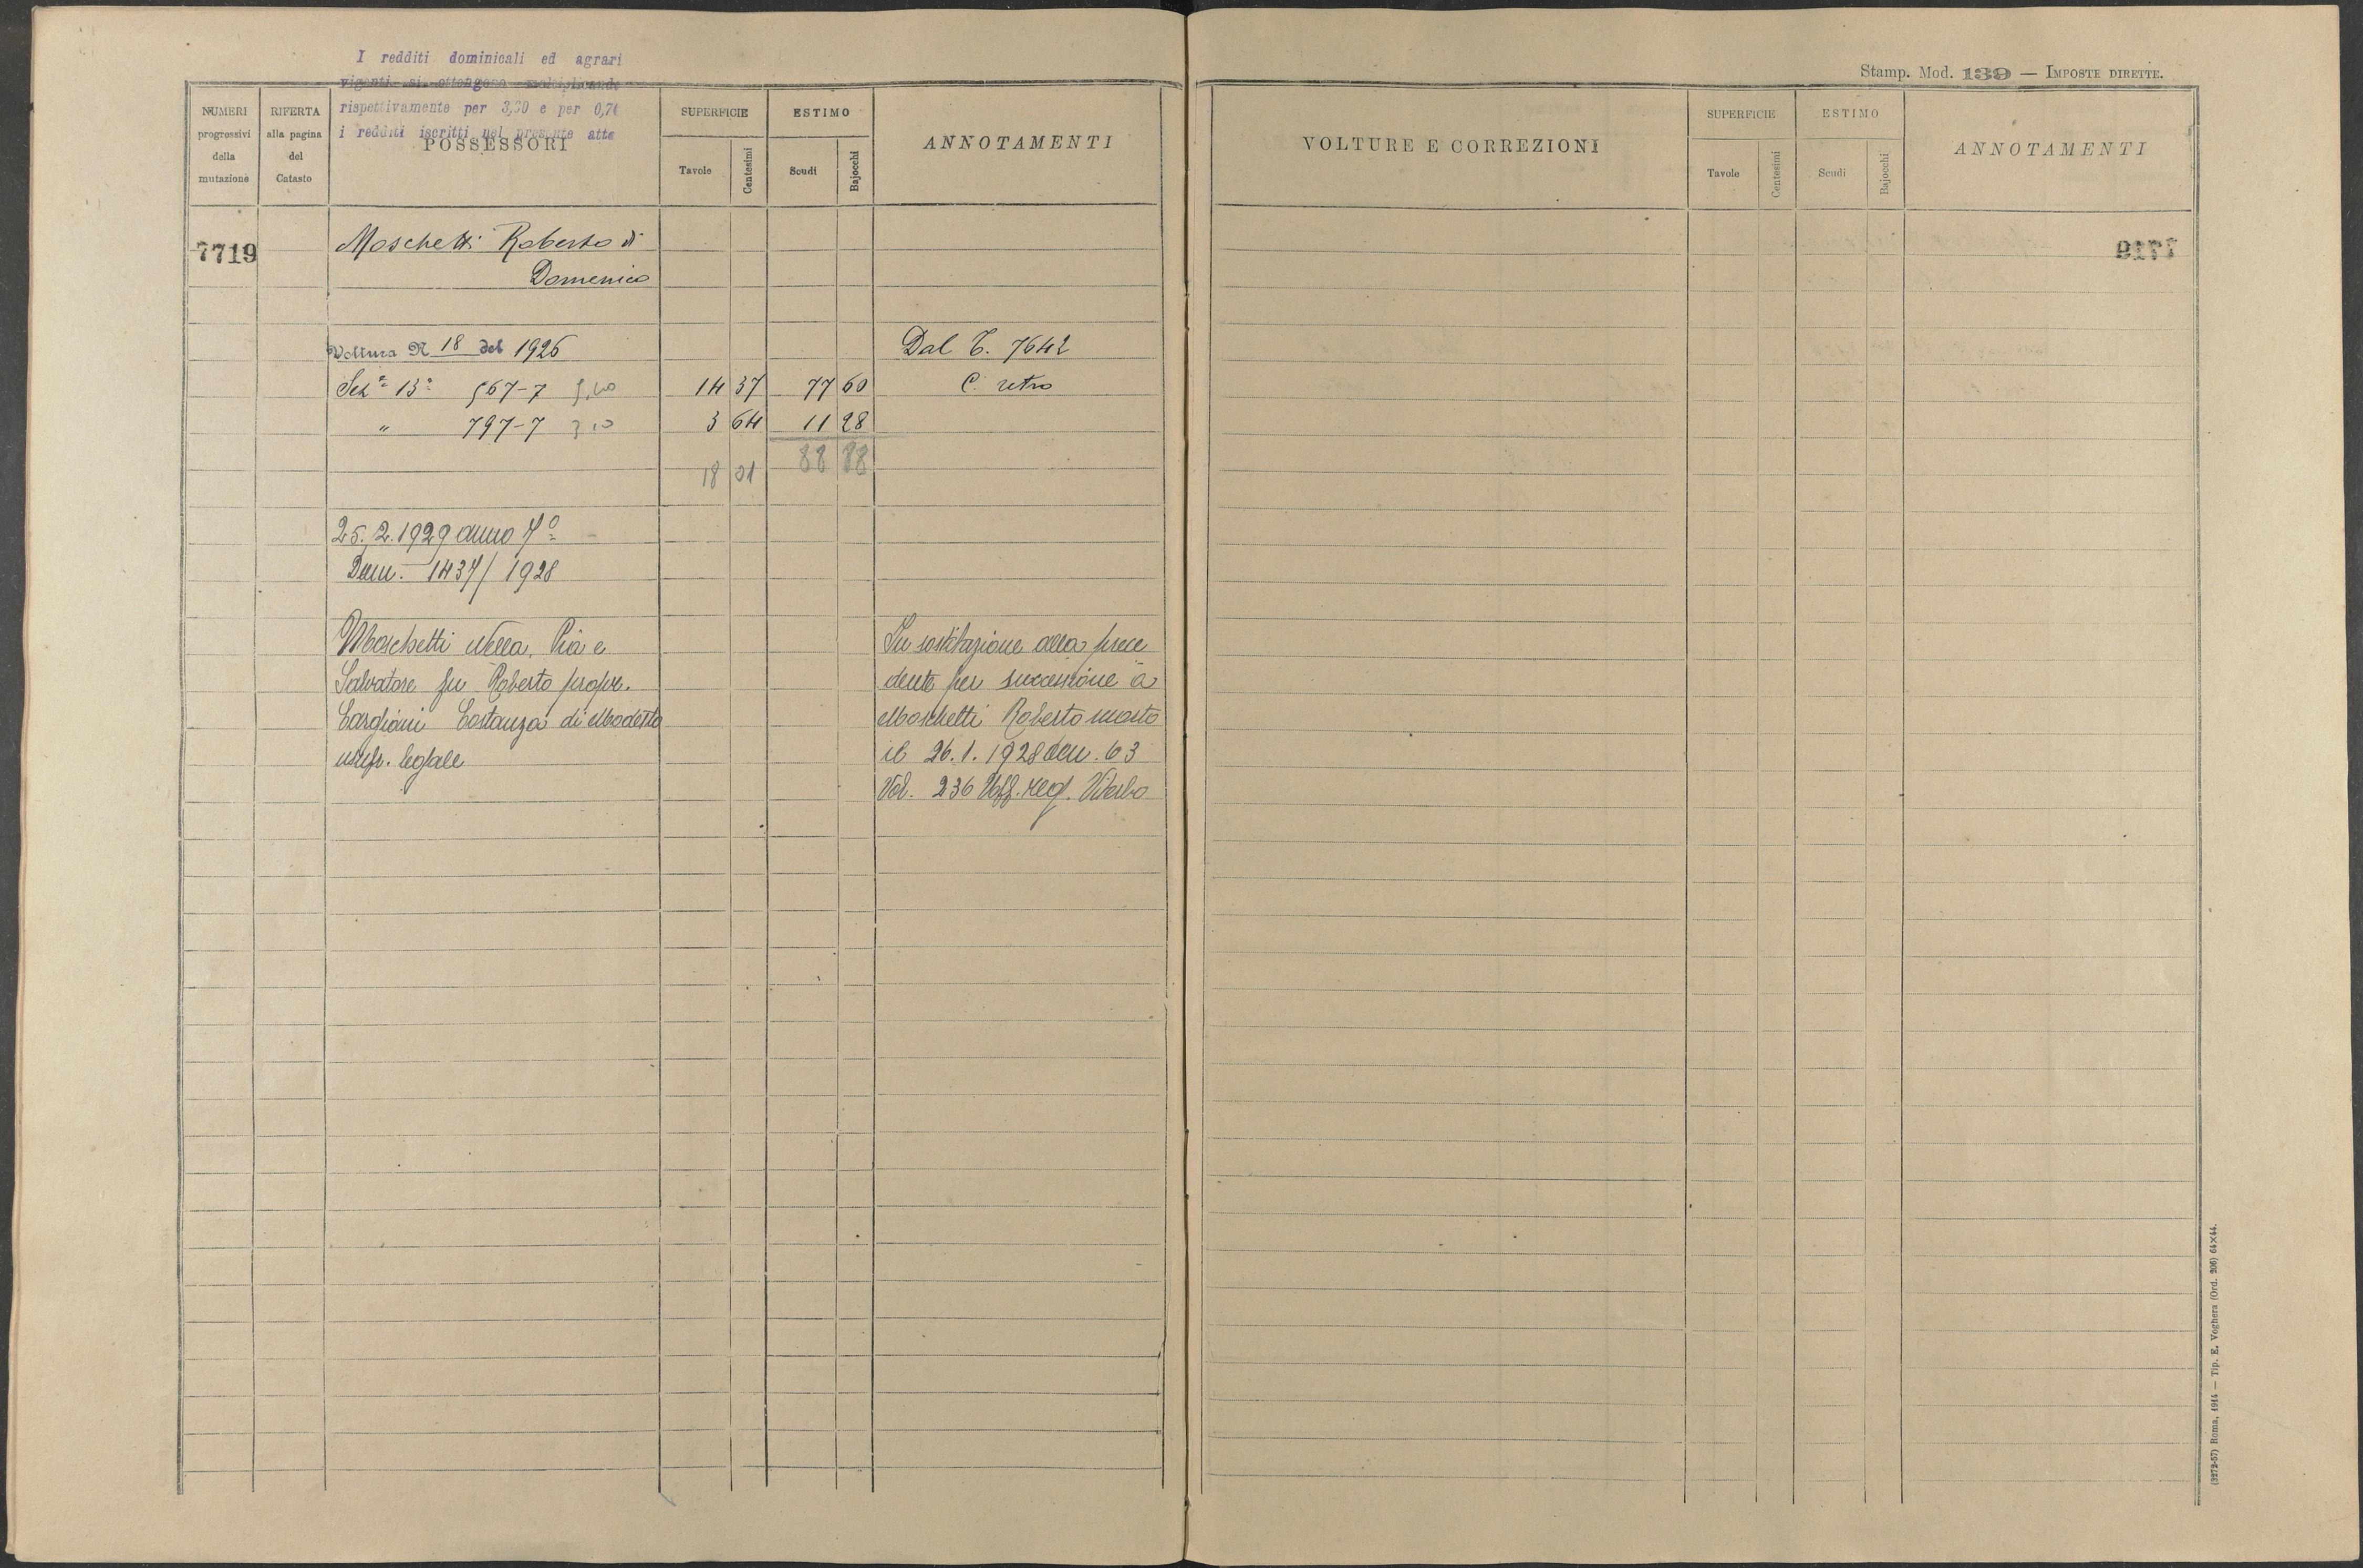 I redditi dominicali ed agrari
vigenti si ottengono moltiplicando
rispettivamente per 3,30 e per 0,70
i redditi iscritti nel presente atto
NUMERI progressivi della mutazione
RIFERTA alla pagina del Catasto
POSSESSORI
SUPERFICIE
Tavole
Centesimi
ESTIMO
Scudi
Bajocchi
ANNOTAMENTI
7719
Moschetti Roberto di
Domenico
Voltura N 18 del 1926
Dal C. 7642
Sez.e 13a 567-7 5,40 14 37 77 60 C. retro
" 797-7 3 10 3 64 11 28
18 01 88 88
25.2.1929 anno 7º
Dom. 1437/1928
Moschetti Nella, Pia e
Salvatore fu Roberto propr.
Costanza di Modesto
usufr. legale
In sostituzione alla prece
dente per successione a
Moschetti Roberto morto
il 26.1.1928 den. 63
Vol. 236 Uff. reg. Viterbo
Stamp. Mod. 139 — IMPOSTE DIRETTE.
VOLTURE E CORREZIONI
SUPERFICIE
Tavole
Centesimi
ESTIMO
Scudi
Bajocchi
ANNOTAMENTI
(3272-57) Roma, 1914 — Tip. E. Voghera (Ord. 206) 64×44.